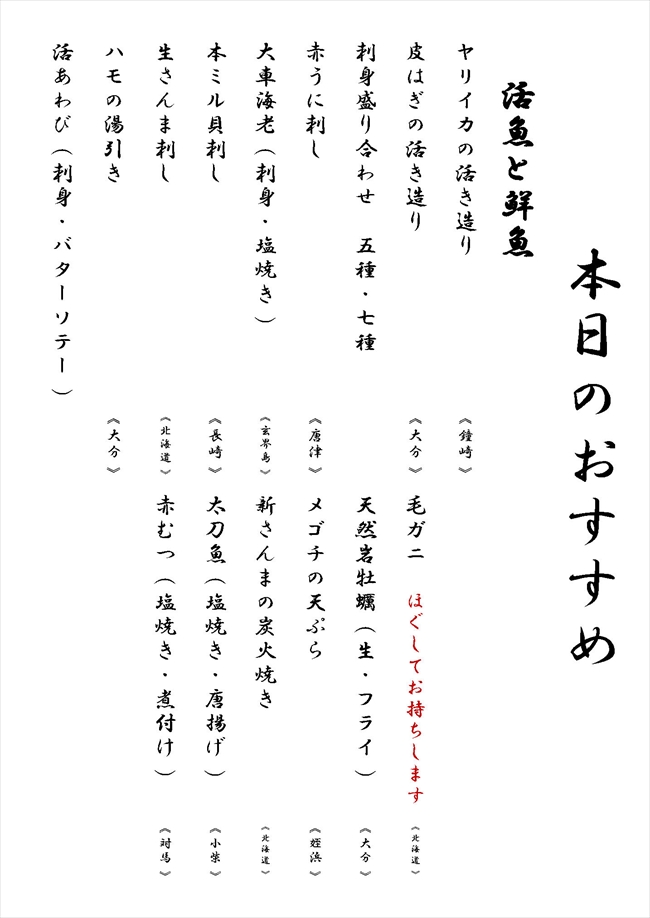 本日のおすすめ
活魚と鮮魚
ヤリイカの活き造り 《鐘崎》
皮はぎの活き造り 《大分》
刺身盛り合わせ 五種・七種
赤うに刺し 《唐津》
大車海老(刺身・塩焼き) 《玄界島》
本ミル貝刺し 《長崎》
生さんま刺し 《北海道》
ハモの湯引き 《大分》
活あわび(刺身・バターソテー)
毛ガニ ほぐしてお持ちします 《北海道》
天然岩牡蠣(生・フライ) 《大分》
メゴチの天ぷら 《姪浜》
新さんまの炭火焼き 《北海道》
太刀魚(塩焼き・唐揚げ) 《小柴》
赤むつ(塩焼き・煮付け) 《対馬》